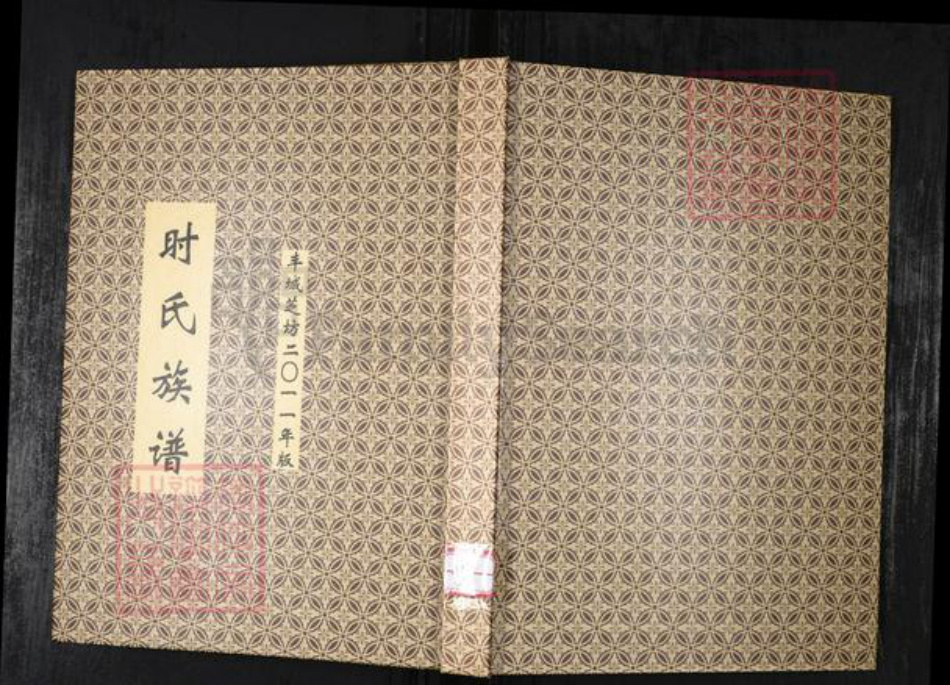 时氏族谱
丰城芝坊二〇一一年版